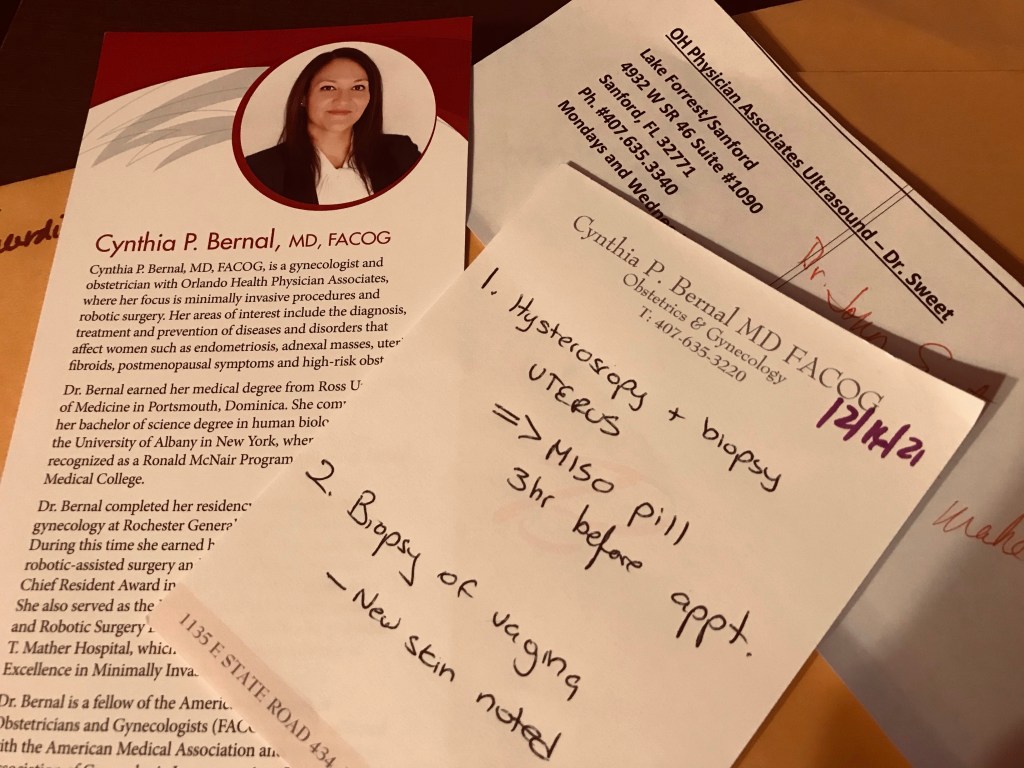 Cynthia P. Bernal, MD, FACOG
Cynthia P. Bernal, MD, FACOG, is a gynecologist and
obstetrician with Orlando Health Physician Associates,
where her focus is minimally invasive procedures and
robotic surgery. Her areas of interest include the diagnosis,
treatment and prevention of diseases and disorders that
affect women such as endometriosis, adnexal masses,
fibroids, postmenopausal symptoms and high-risk
Dr. Bernal earned her medical degree from Ross
of Medicine in Portsmouth, Dominica. She
her bachelor of science degree in human
the University of Albany in New York,
recognized as a Ronald McNair Program
Medical College.
Dr. Bernal completed her
gynecology at Rochester
During this time she earned
robotic-assisted surgery
Chief Resident Award in
She also served as the
and Robotic Surgery
T. Mather Hospital,
Excellence in Minimally
Dr. Bernal is a fellow of the
Obstetricians and Gynecologists
with the American Medical Association
OH Physician Associates Ultrasound – Dr. Sweet
Lake Forrest/Sanford
4932 W SR 46 Suite #1090
Sanford, FL 32771
Ph. #407.635.3340
Mondays and
Dr. John
make
Cynthia P. Bernal MD FACOG
Obstetrics & Gynecology
T: 407-635-3220
12/14/21
1. Hysteroscopy + biopsy
UTERUS
=> MISO pill
3hr before appt.
2. Biopsy of vagina
- New skin noted
1135 E STATE ROAD 434,